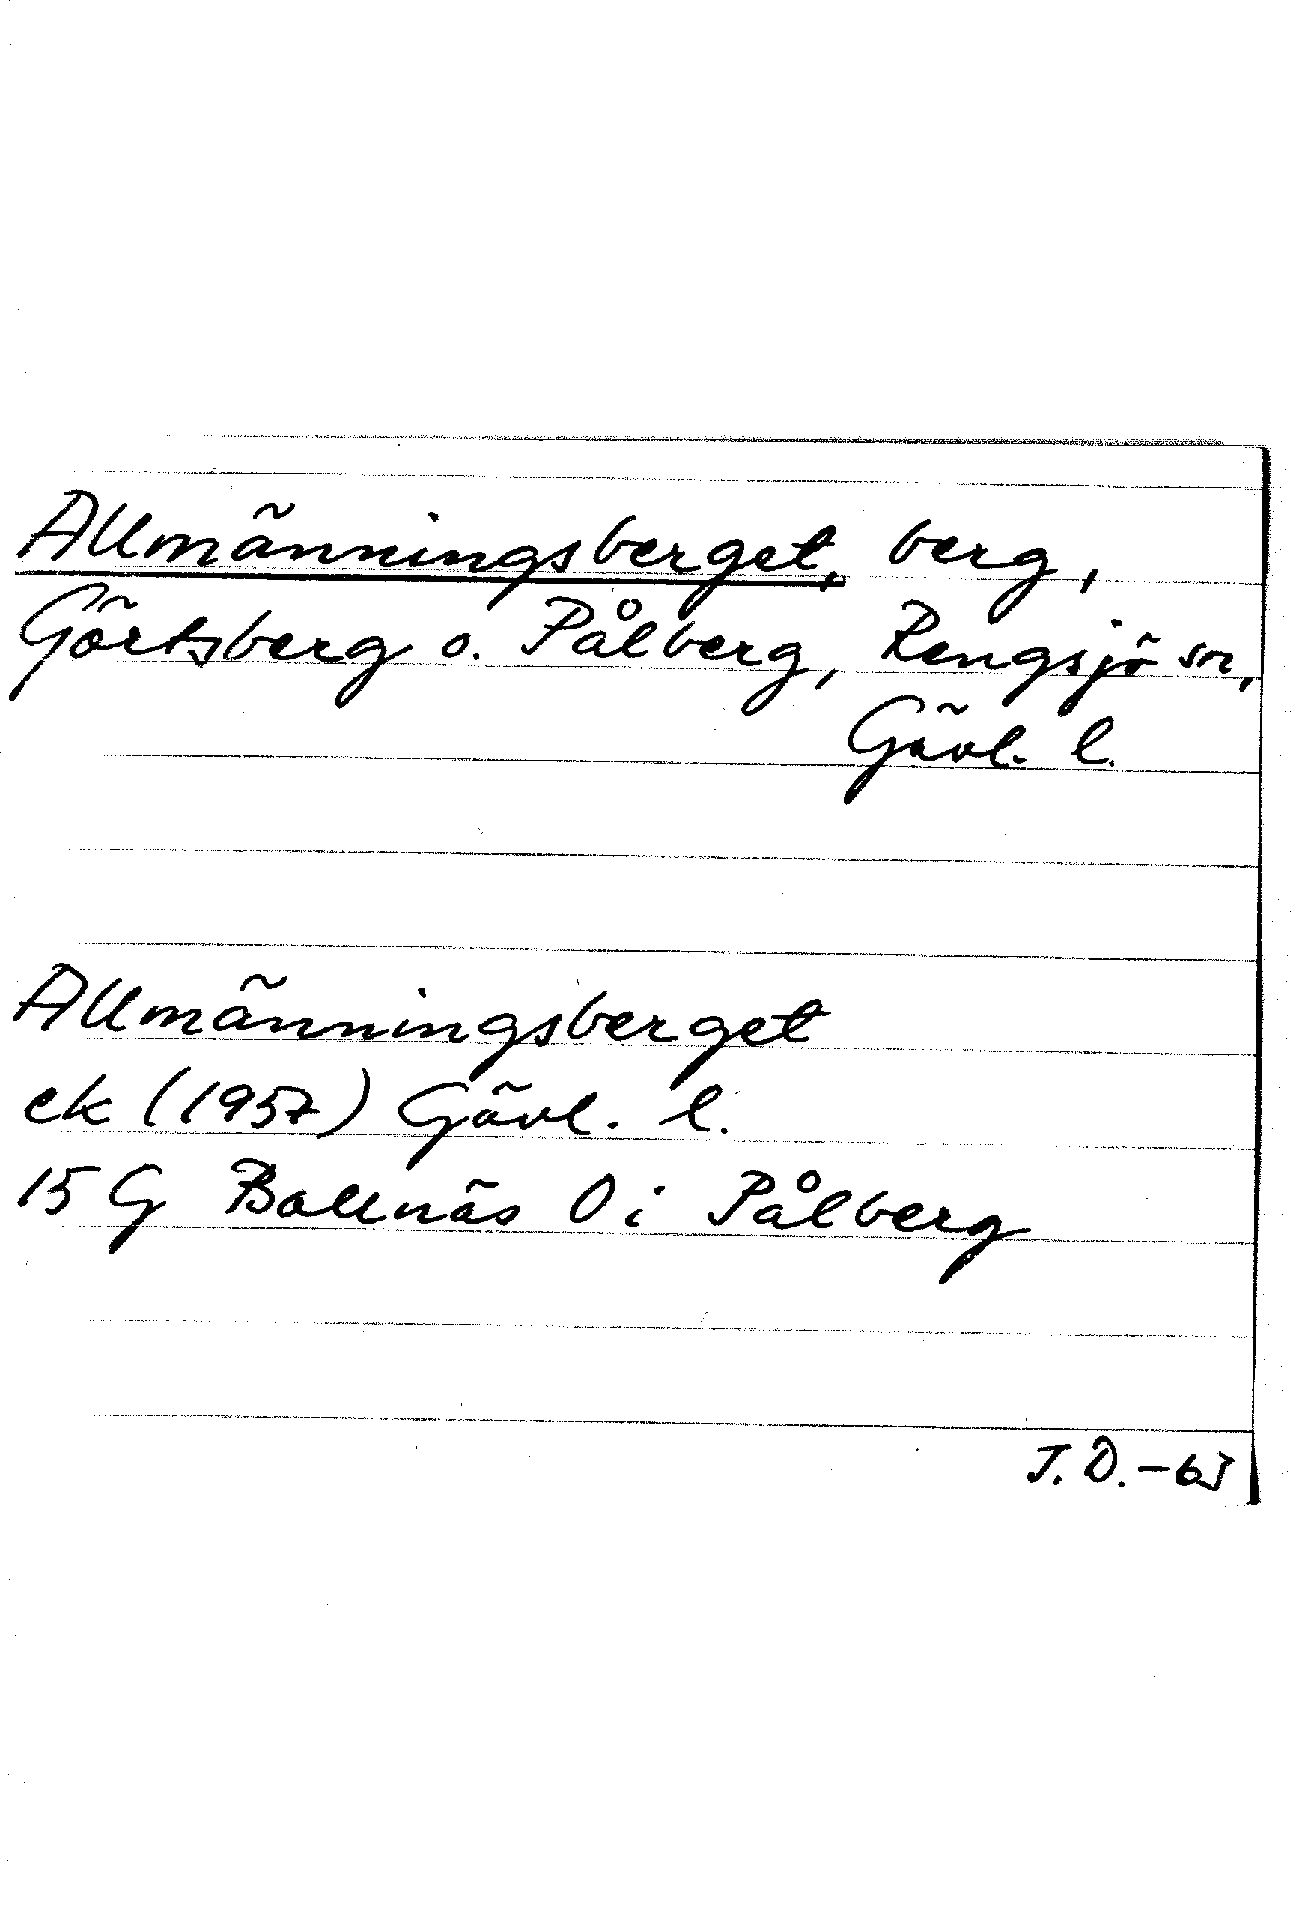 Allmänningsberget, berg,
Görtsberg o. Pålberg, Rengsjö sn,
Gävl. l.
Allmänningsberget
ek (1957) Gävl. l.
15 G Bollnäs 0 i Pålberg
J. D. - 63